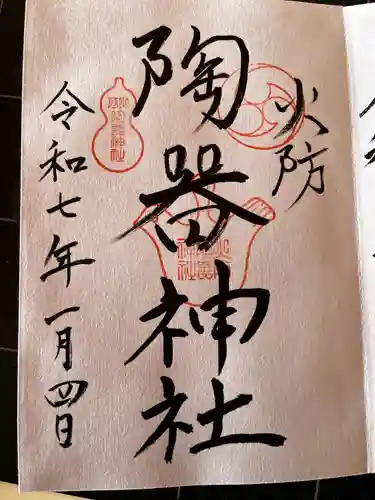 火防
陶器神社
令和七年一月四日